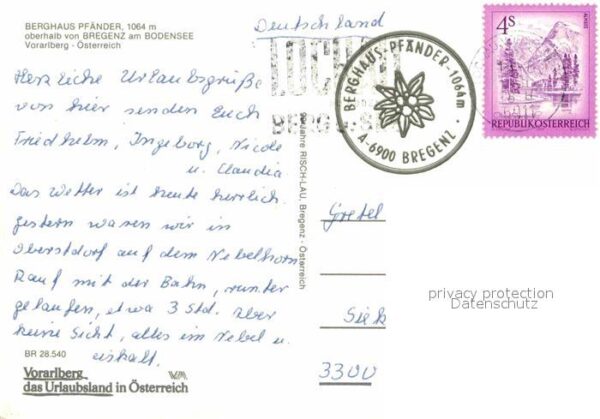 BERGHAUS PFÄNDER, 1064 m
oberhalb von BREGENZ am BODENSEE
Vorarlberg - Österreich
Deutschland
Herzliche Urlaubsgrüße
von hier senden Euch
Friedhelm, Ingeborg, Nicole
u. Claudia
Das Wetter ist heute herrlich.
gestern waren wir in
Oberstdorf auf dem Nebelhorn
Rauf mit der Bahn, runter
gelaufen, etwa 3 Std. Aber
keine Sicht, alles im Nebel u.
eiskalt.
BR 28.540
Vorarlberg
das Urlaubsland in Österreich
Jahre RISCH-LAU, Bregenz - Österreich
BERGHAUS-PFÄNDER-1064m
A-6900 BREGENZ
4S
REPUBLIK ÖSTERREICH
Gretel
Siek
3300
privacy protection
Datenschutz